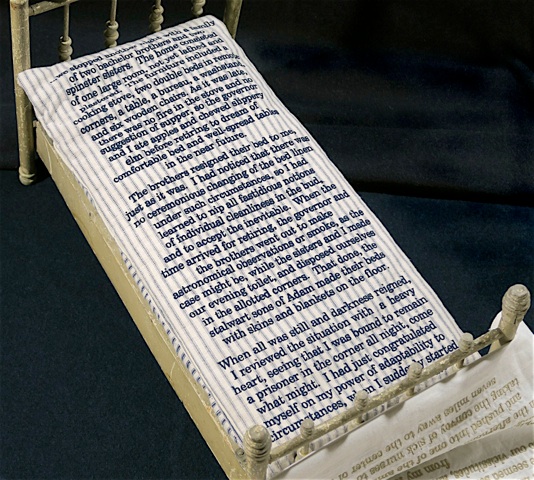 we stopped another night with a family
of two bachelor brothers and two
spinster sisters. The home consisted
of one large room, not yet lathed and
plastered. The furniture included a
cooking stove, two double beds in remote
corners, a table, a bureau, a washstand,
and six wooden chairs. As it was late,
there was no fire in the stove and no
suggestion of supper, so the governor
and I ate apples and chewed slippery
elm before retiring to dream of
comfortable beds and well-spread tables
in the near future.
The brothers resigned their bed to me,
just as it was. I had noticed that there was
no ceremonious changing of the bed linen
under such circumstances, so I had
learned to nip all fastidious notions
of individual cleanliness in the bud,
and to accept the inevitable. When the
time arrived for retiring, the governor and
the brothers went out to make
astronomical observations or smoke, as the
case might be, while the sisters and I made
our evening toilet, and disposed ourselves
in the allotted corners. That done, the
stalwart sons of Adam made their beds
with skins and blankets on the floor.
When all was still and darkness reigned,
I reviewed the situation with a heavy
heart, seeing that I was bound to remain
a prisoner in the corner all night, come
what might. I had just congratulated
myself on my power of adaptability to
circumstances, when I suddenly started
seven miles away to the center of
taking the
and pushed my way
the afternoon into one of
of the
from my
seemed